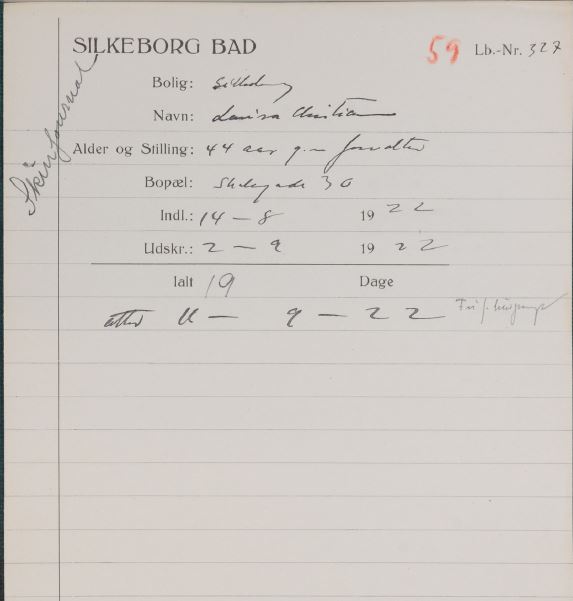 SILKEBORG BAD
59 Lb.-Nr. 327
Skinjournal
Bolig: Silkeborg
Navn: Lovisa Christian
Alder og Stilling: 44 aar g. m forvalter
Bopæl: 30
Indl.: 14 – 8 1922
Udskr.: 2 – 9 1922
Ialt 19 Dage
atter 11 – 9 – 22